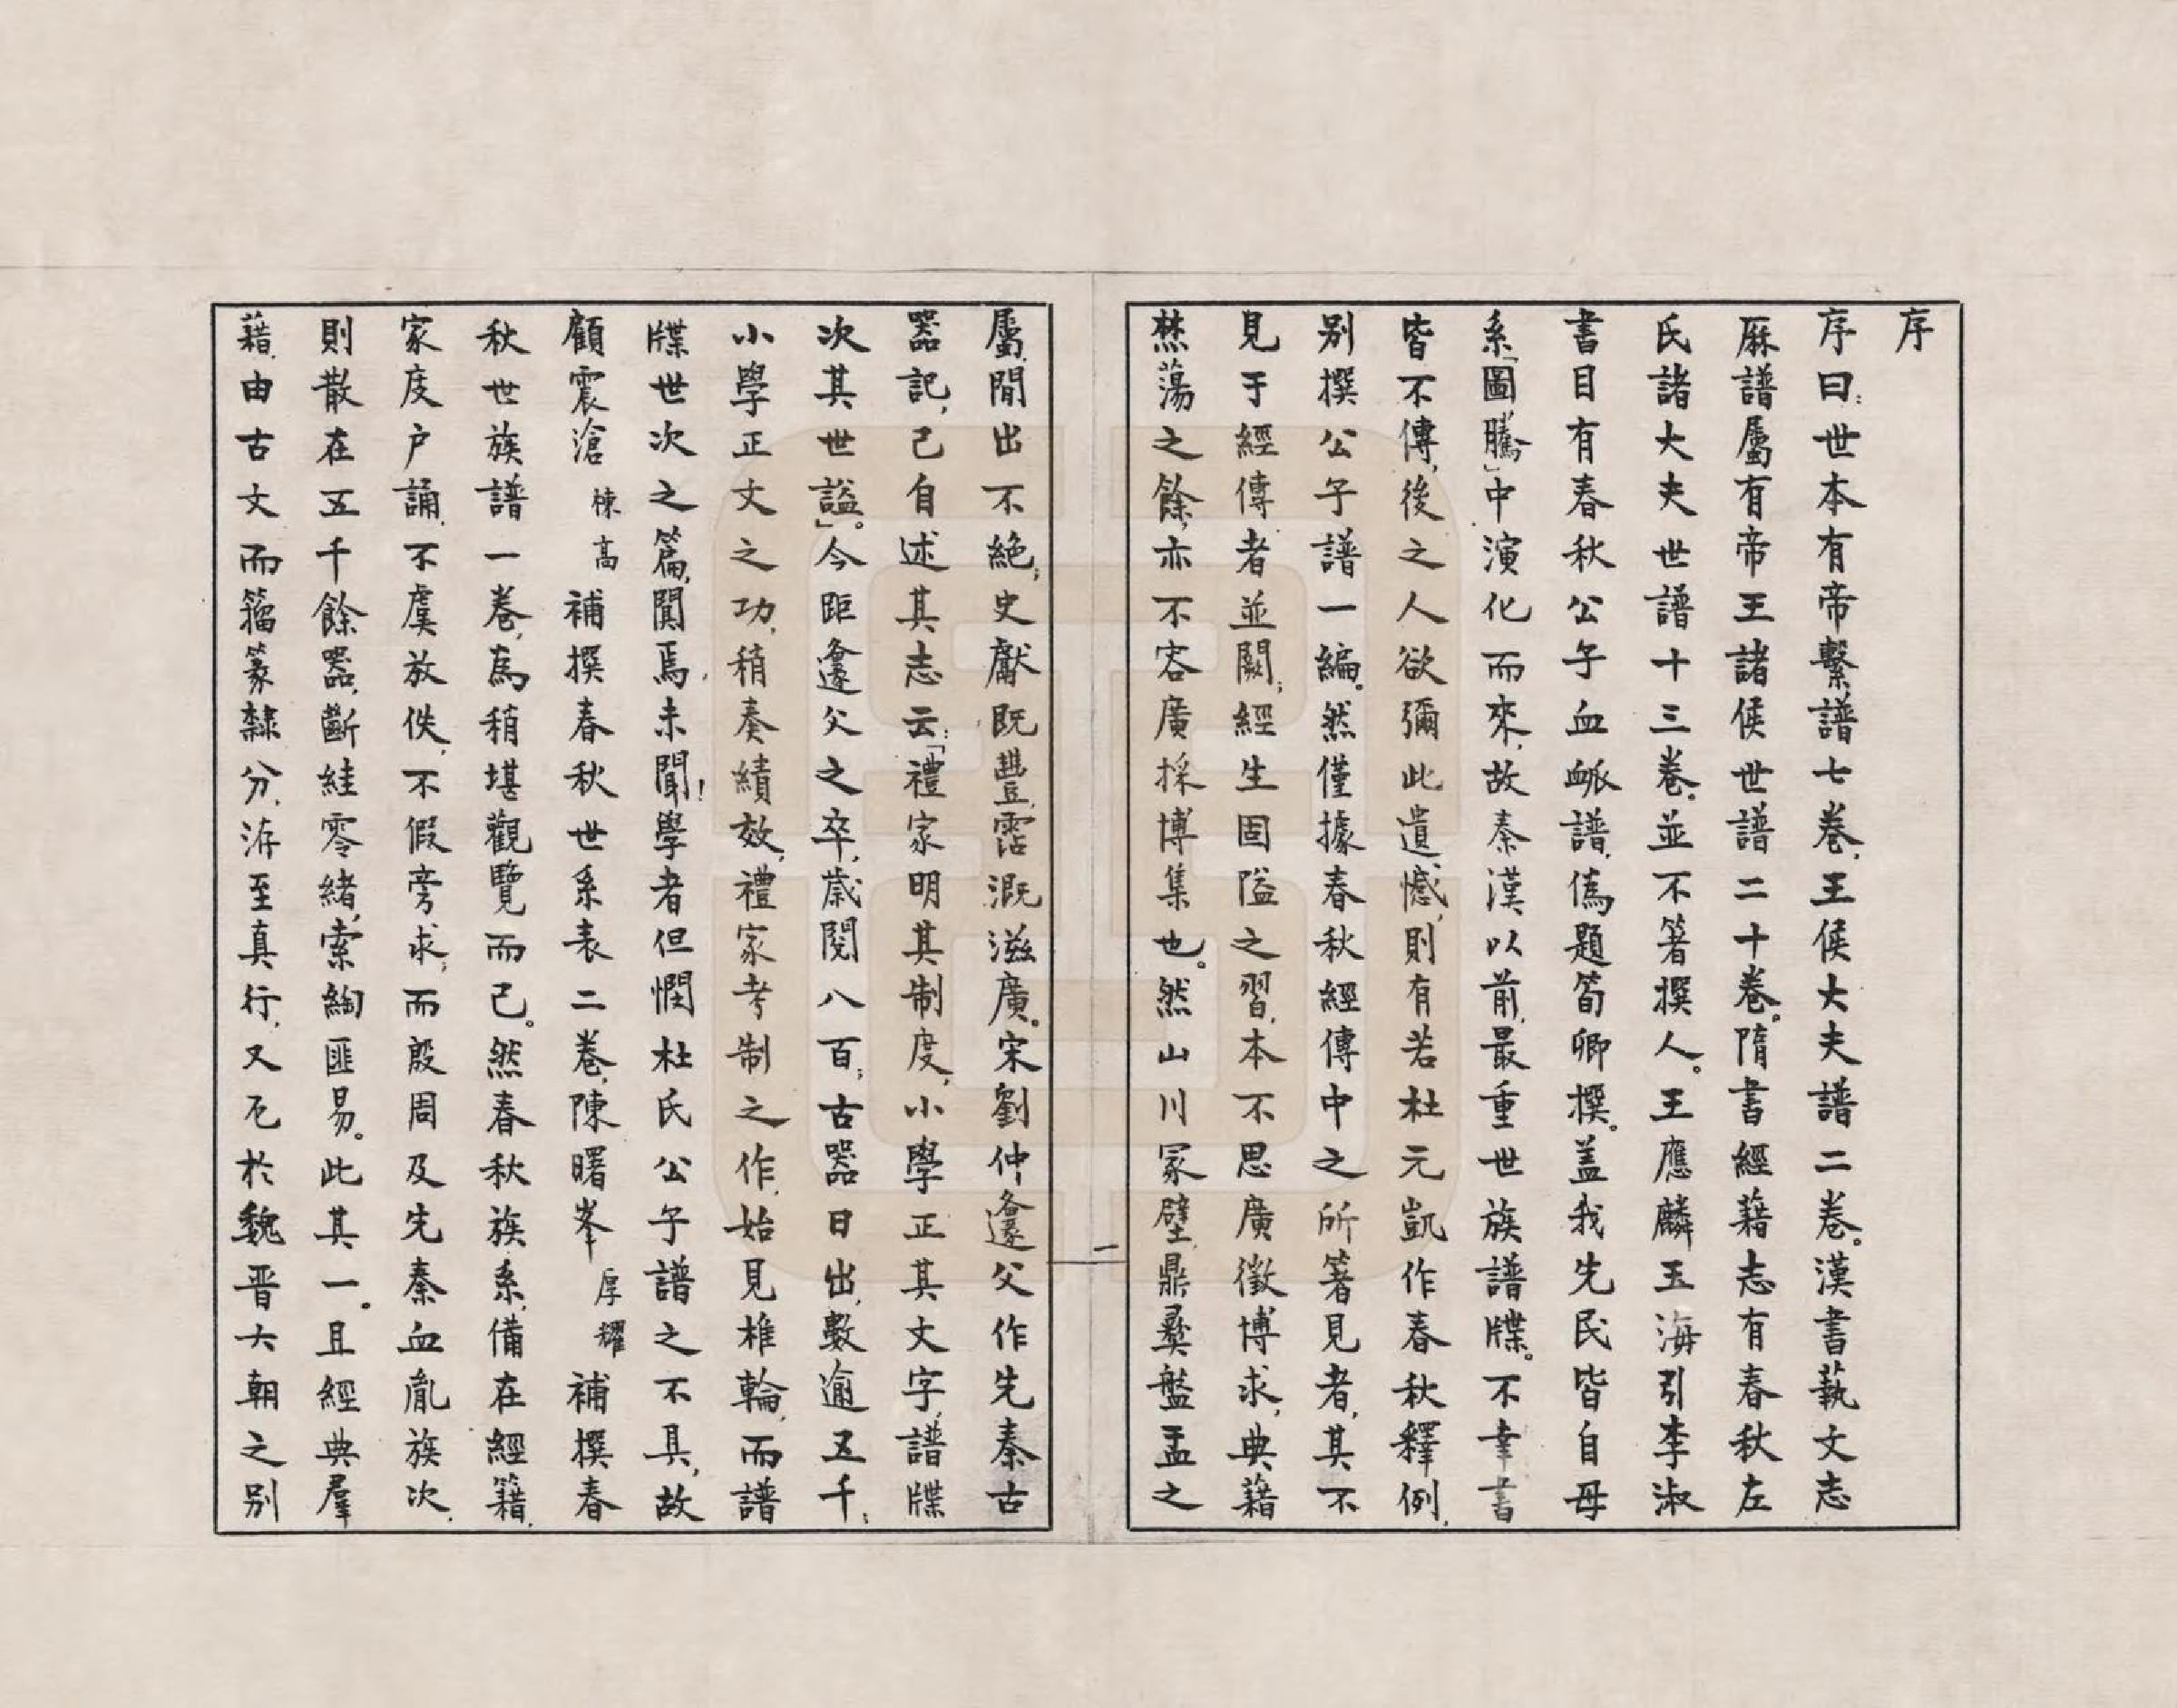 序
序曰：世本有帝繫譜七卷，王侯大夫譜二卷。漢書藝文志
厤譜屬有帝王諸侯世譜二十卷。隋書經藉志有春秋左
氏諸大夫世譜十三卷。並不箸撰人。王應麟玉海引李淑
書目有春秋公子血衇譜，僞題荀卿撰。盖我先民皆自母
系「圖騰」中演化而來，故秦漢以前，最重世族譜牒。不幸書
皆不傳，後之人欲彌此遺憾，則有若杜元凱作春秋釋例，
別撰公子譜一編。然僅據春秋經傳中之所箸見者，其不
見于經傳者並闕；經生固隘之習，本不思廣徵博求，典藉
焚蕩之餘，亦不容廣採博集也。然山川冢壁，鼎彝盤盂之
一
屬，閒出不絶；史獻既豐，霑溉滋廣。宋劉仲邍父作先秦古
器記，己自述其志云：「禮家明其制度，小學正其文字，譜牒
次其世謚」。今距邍父之卒，歲閱八百；古器日出，數逾五千；
小學正文之功，稍奏績效，禮家考制之作，始見椎輪，而譜
牒世次之篇，闃焉，未聞！學者但憫杜氏公子譜之不具，故
顧震滄棟高補撰春秋世系表二卷，陳曙峯厚耀補撰春
秋世族譜一卷，為稍堪觀覽而己。然春秋族系，備在經籍，
家度户誦，不虞放佚，不假旁求，而殷周及先秦血胤族次，
則散在五千餘器，斷絓零緒，索綯匪易。此其一。且經典羣
藉，由古文而籀篆隸分，洊至真行，又厄於魏晋六朝之別